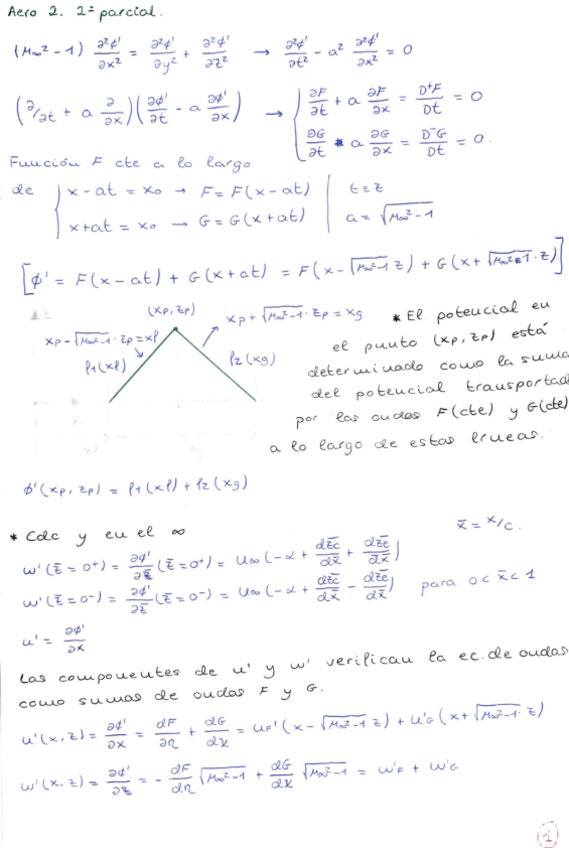 Aero 2. 2º parcial.
(M∞² - 1) ∂²ϕ'/∂x² = ∂²ϕ'/∂y² + ∂²ϕ'/∂z² → ∂²ϕ'/∂t² - a² ∂²ϕ'/∂x² = 0
(∂/∂t + a ∂/∂x)(∂ϕ'/∂t - a ∂ϕ'/∂x) → { ∂F/∂t + a ∂F/∂x = D⁺F/Dt = 0
∂G/∂t - a ∂G/∂x = D⁻G/Dt = 0.
Función F cte a lo largo
de { x - at = x₀ → F = F(x - at) | t = z
x + at = x₀ → G = G(x + at) | a = √(M∞² - 1)
[ϕ' = F(x - at) + G(x + at) = F(x - √(M∞² - 1) z) + G(x + √(M∞² - 1) · z)]
(xp, zp)
xp - √(M∞² - 1) · zp = xf
xp + √(M∞² - 1) · zp = xg
f1(xf)
f2(xg)
* El potencial en
el punto (xp, zp) está
determinado como la suma
del potencial transportad
por las ondas F(cte) y G(cte)
a lo largo de estas líneas.
ϕ'(xp, zp) = f1(xf) + f2(xg)
* Cdc y en el ∞
x̄ = x/c.
w'(z̄ = 0⁺) = ∂ϕ'/∂z̄ (z̄ = 0⁺) = U∞(-α + dz̄c/dx̄ + dz̄e/dx̄)
w'(z̄ = 0⁻) = ∂ϕ'/∂z̄ (z̄ = 0⁻) = U∞(-α + dz̄c/dx̄ - dz̄e/dx̄) para 0 < x̄ < 1
u' = ∂ϕ'/∂x
Las componentes de u' y w' verifican la ec. de ondas
como sumas de ondas F y G.
u'(x, z) = ∂ϕ'/∂x = dF/dη + dG/dχ = uF'(x - √(M∞² - 1) z) + u'G(x + √(M∞² - 1) · z)
w'(x, z) = ∂ϕ'/∂z = - dF/dη √(M∞² - 1) + dG/dχ √(M∞² - 1) = w'F + w'G
1